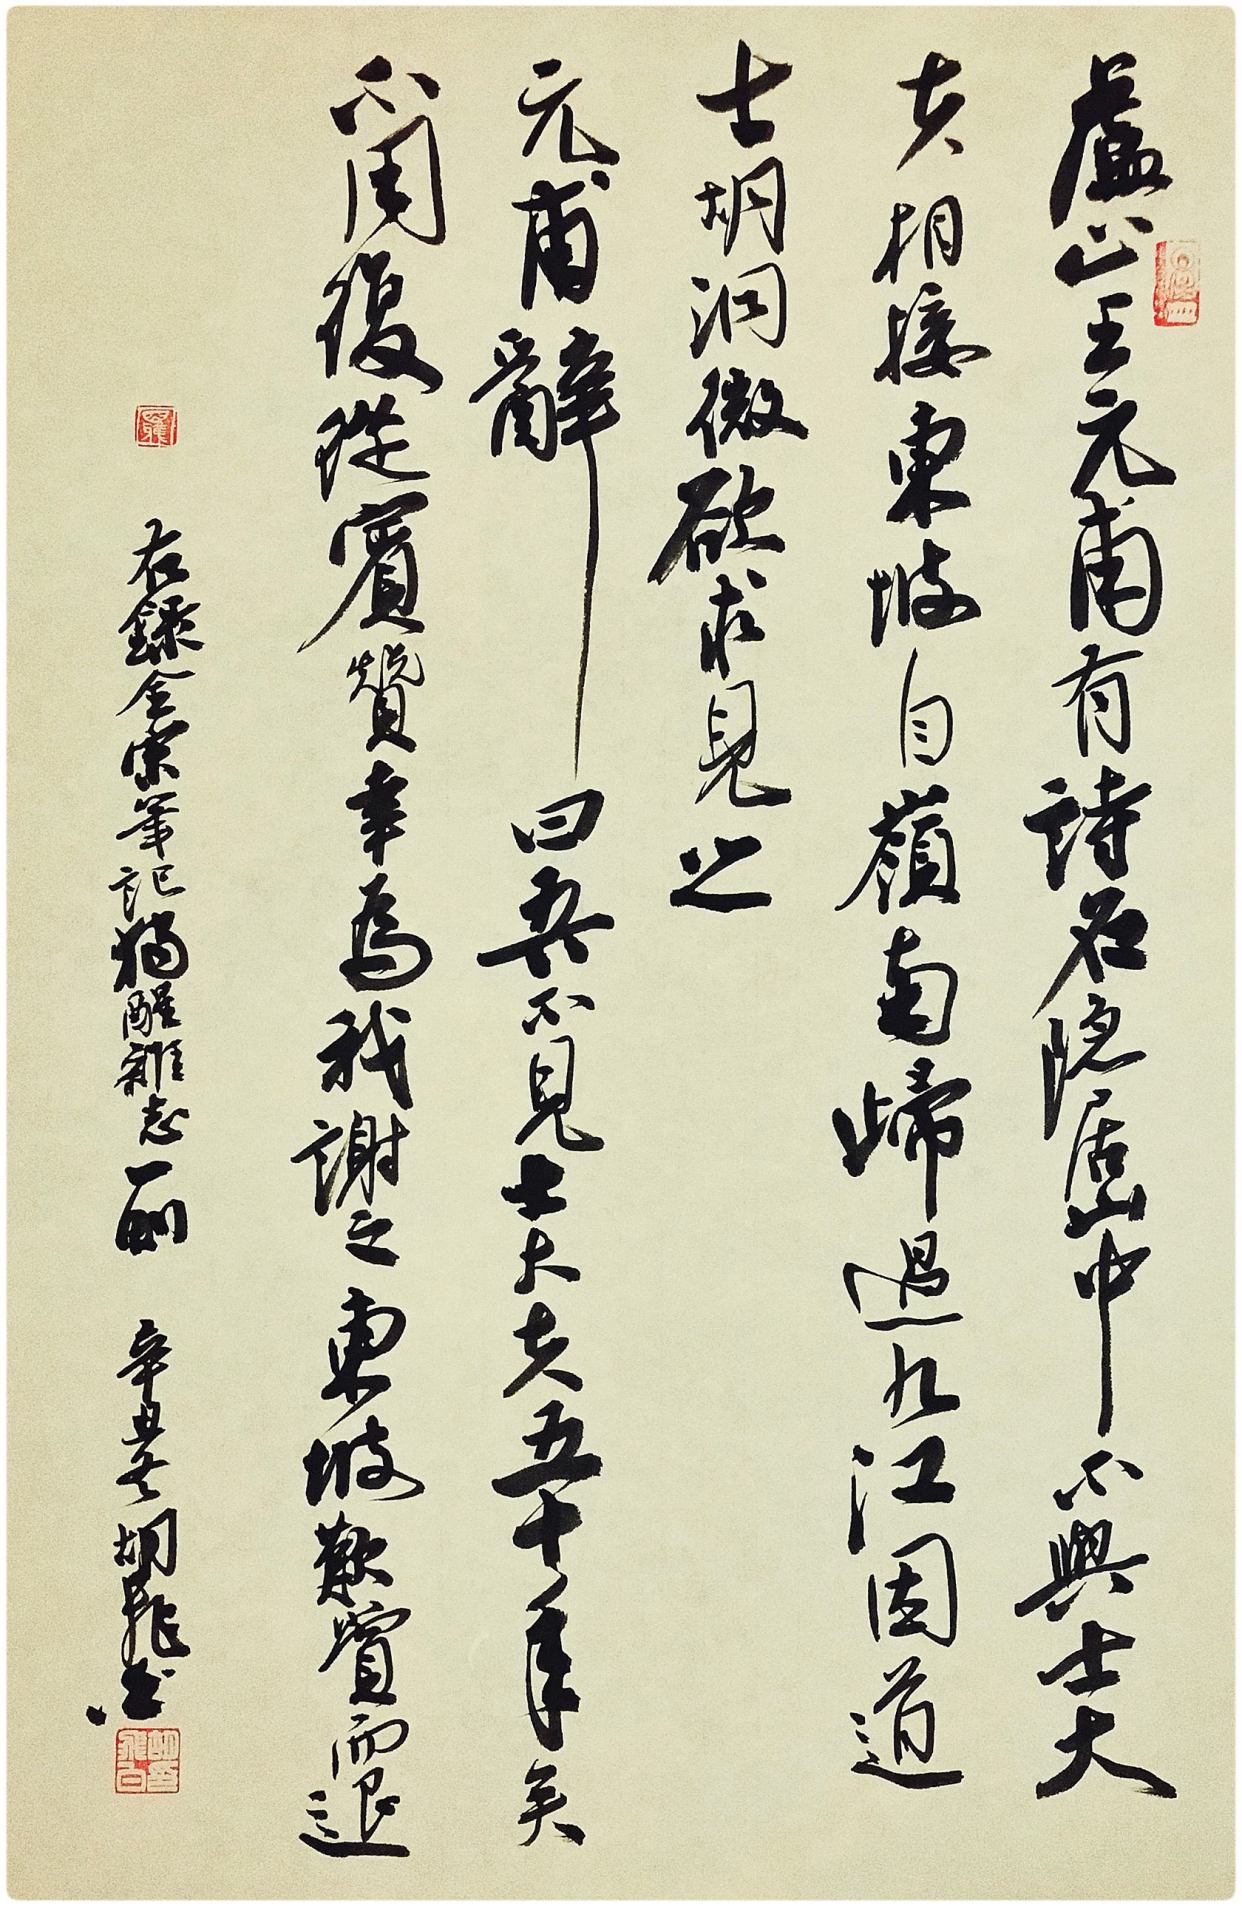 廬山王元甫有詩名隱居山中不與士大
夫相接東坡自嶺南歸過九江因道
士胡洞微欲求見之
元甫辭曰吾不見士大夫五十年矣
不用復從賓贊幸為我謝之東坡歎賞而退
右錄金宋筆記獨醒雜志一則 辛丑冬胡飛書